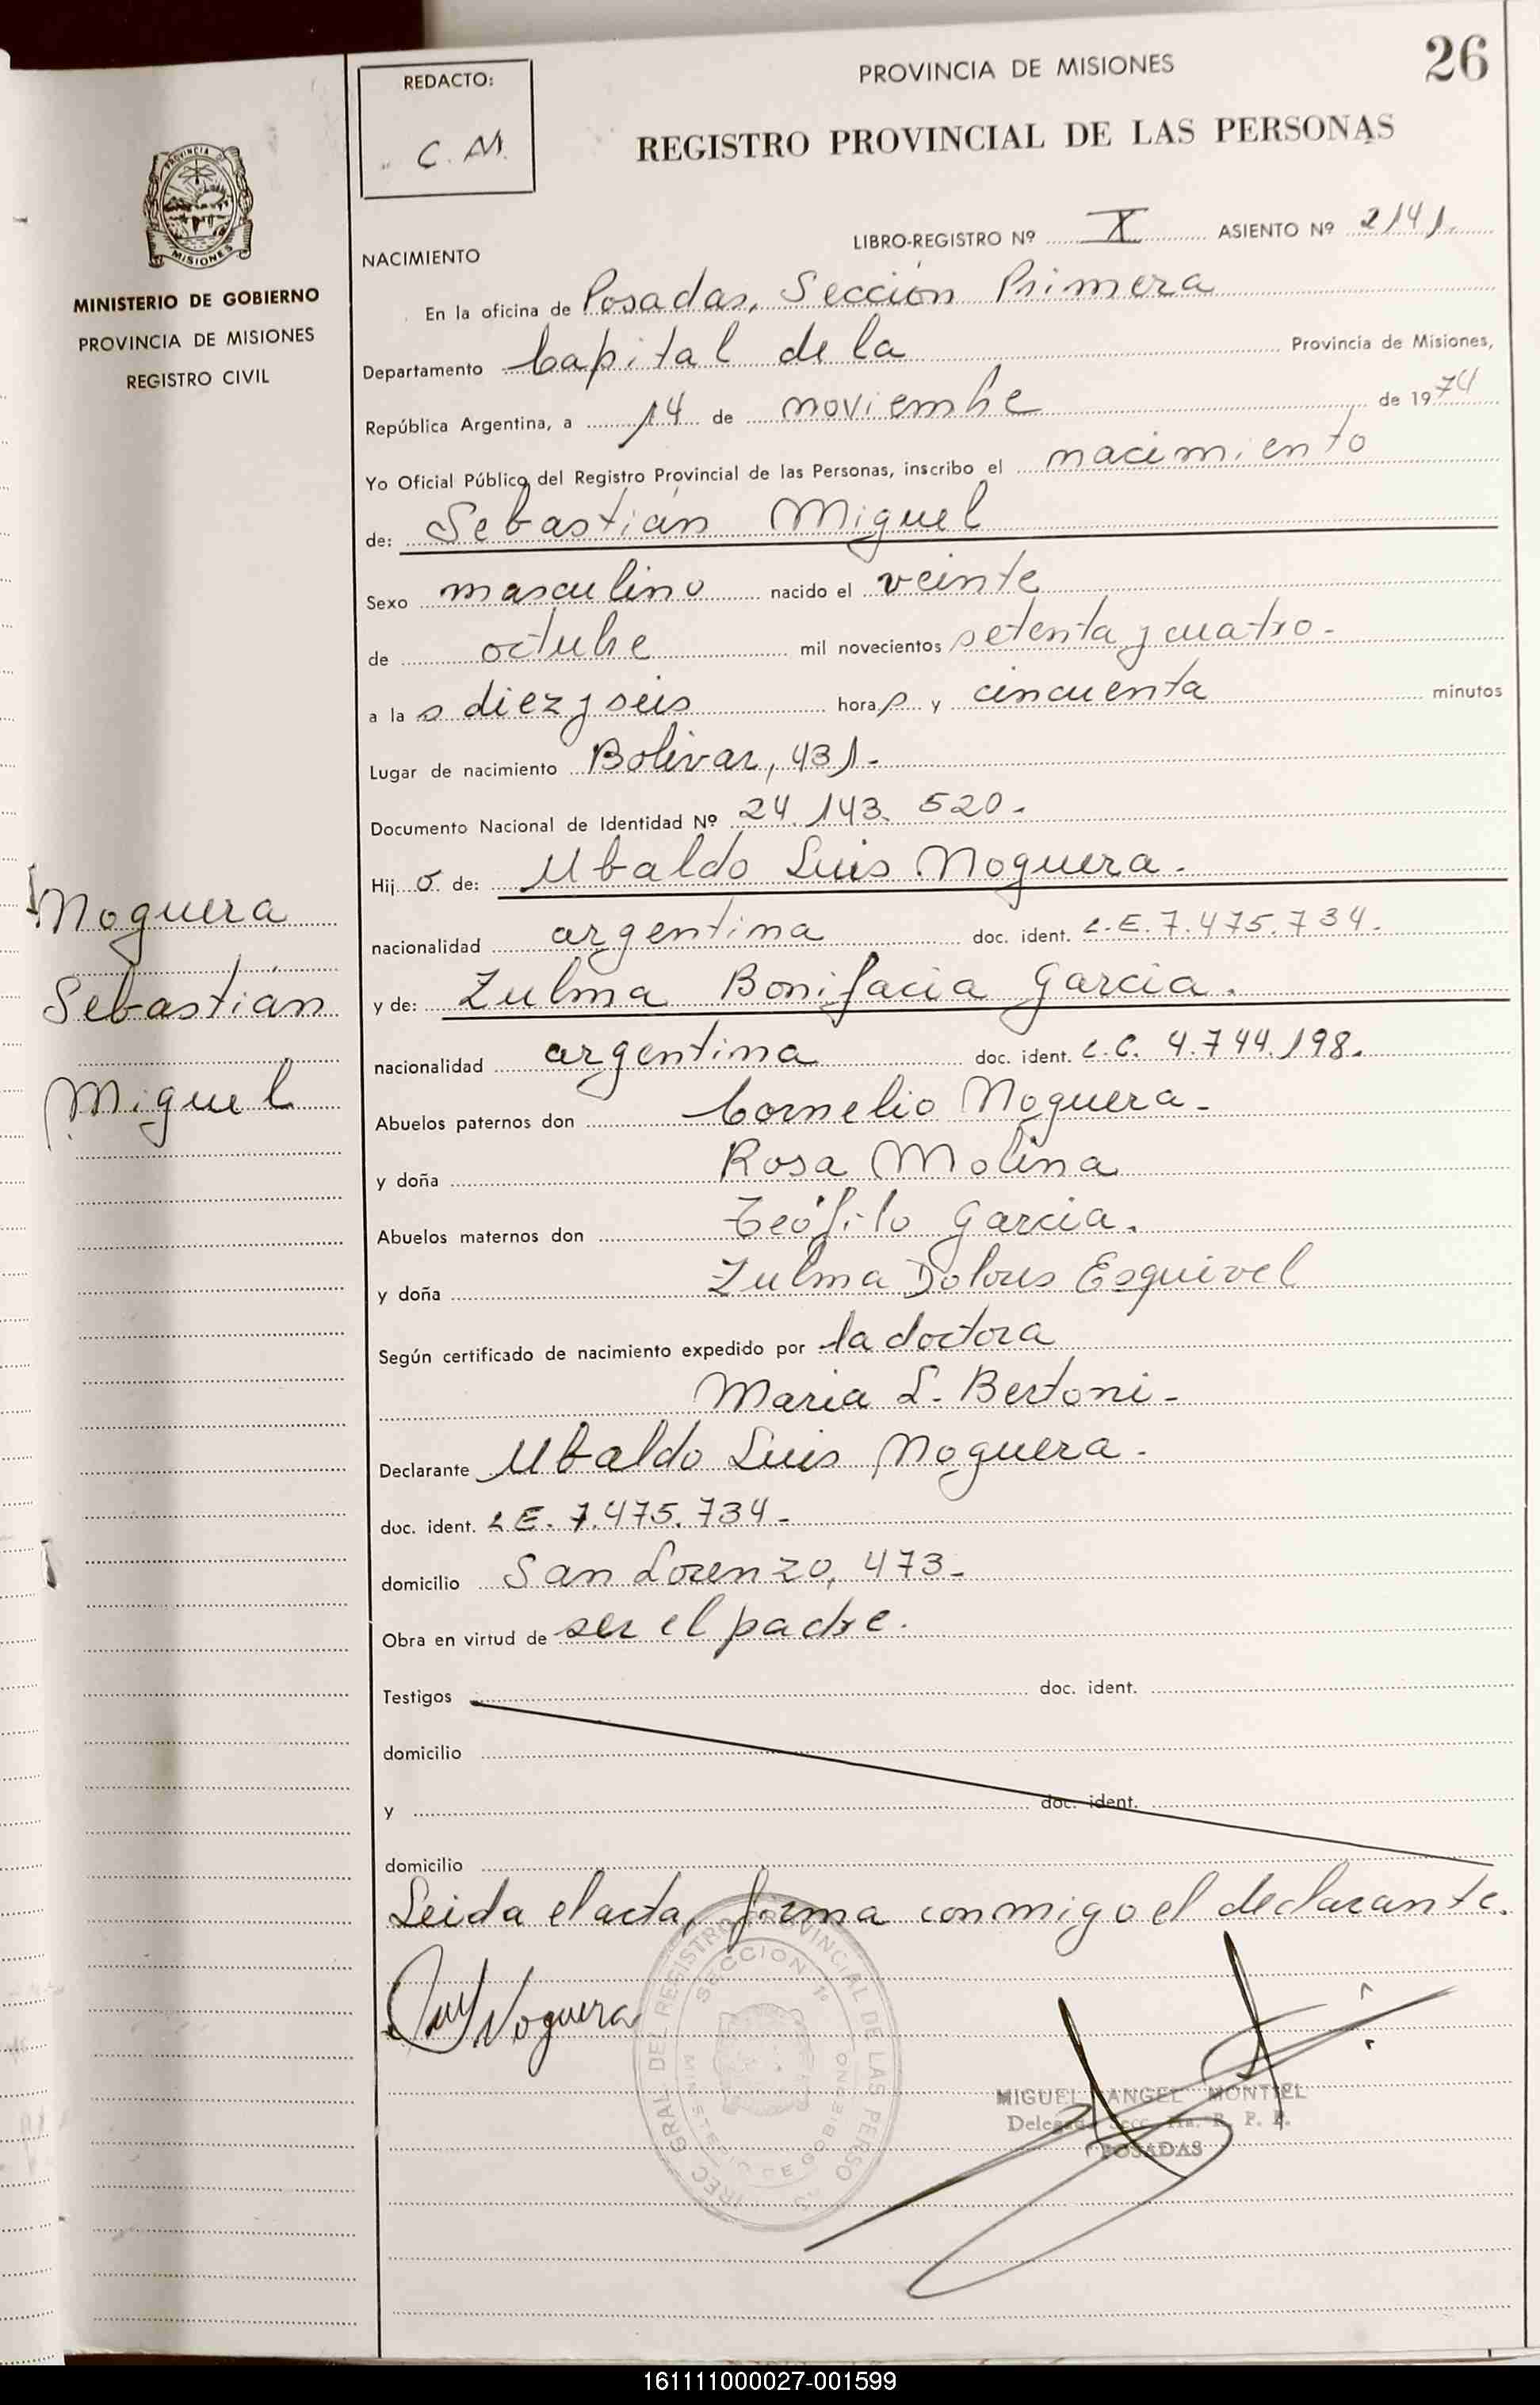 REDACTO:
C. M.
PROVINCIA DE MISIONES
26
REGISTRO PROVINCIAL DE LAS PERSONAS
PROVINCIA DE
MISIONES
MINISTERIO DE GOBIERNO
PROVINCIA DE MISIONES
REGISTRO CIVIL
LIBRO-REGISTRO Nº X ASIENTO Nº 2141.
NACIMIENTO
En la oficina de Posadas, Sección Primera
Departamento Capital de la Provincia de Misiones,
República Argentina, a 14 de noviembre de 1974
Yo Oficial Público del Registro Provincial de las Personas, inscribo el nacimiento
de: Sebastián Miguel
Sexo masculino nacido el veinte
de octubre mil novecientos setenta y cuatro.-
a las diez y seis horas y cincuenta minutos
Lugar de nacimiento Bolivar, 431.-
Documento Nacional de Identidad Nº 24.143.520.-
Hijo de: Ubaldo Luis Noguera.-
nacionalidad argentina doc. ident. L.E. 7.475.734.-
y de: Zulma Bonifacia Garcia.
nacionalidad argentina doc. ident. L.C. 4.744.198.
Abuelos paternos don Cornelio Noguera.-
y doña Rosa Molina
Abuelos maternos don Teófilo Garcia.
y doña Zulma Dolores Esquivel
Según certificado de nacimiento expedido por la doctora
Maria L. Bertoni.-
Declarante Ubaldo Luis Noguera.-
doc. ident. L.E. 7.475.734.-
domicilio San Lorenzo, 473.-
Obra en virtud de ser el padre.
Testigos doc. ident.
domicilio
y doc. ident.
domicilio
Leida el acta, firma conmigo el declarante.
Noguera
Sebastián
Miguel
Noguera
REGISTRO PROVINCIAL DE LAS PERSO
SECCION 1º
MINISTERIO DE GOBIERNO
MIGUEL ANGEL MONTIEL
Delegado Secc. 1ra. R. P. P.
POSADAS
161111000027-001599